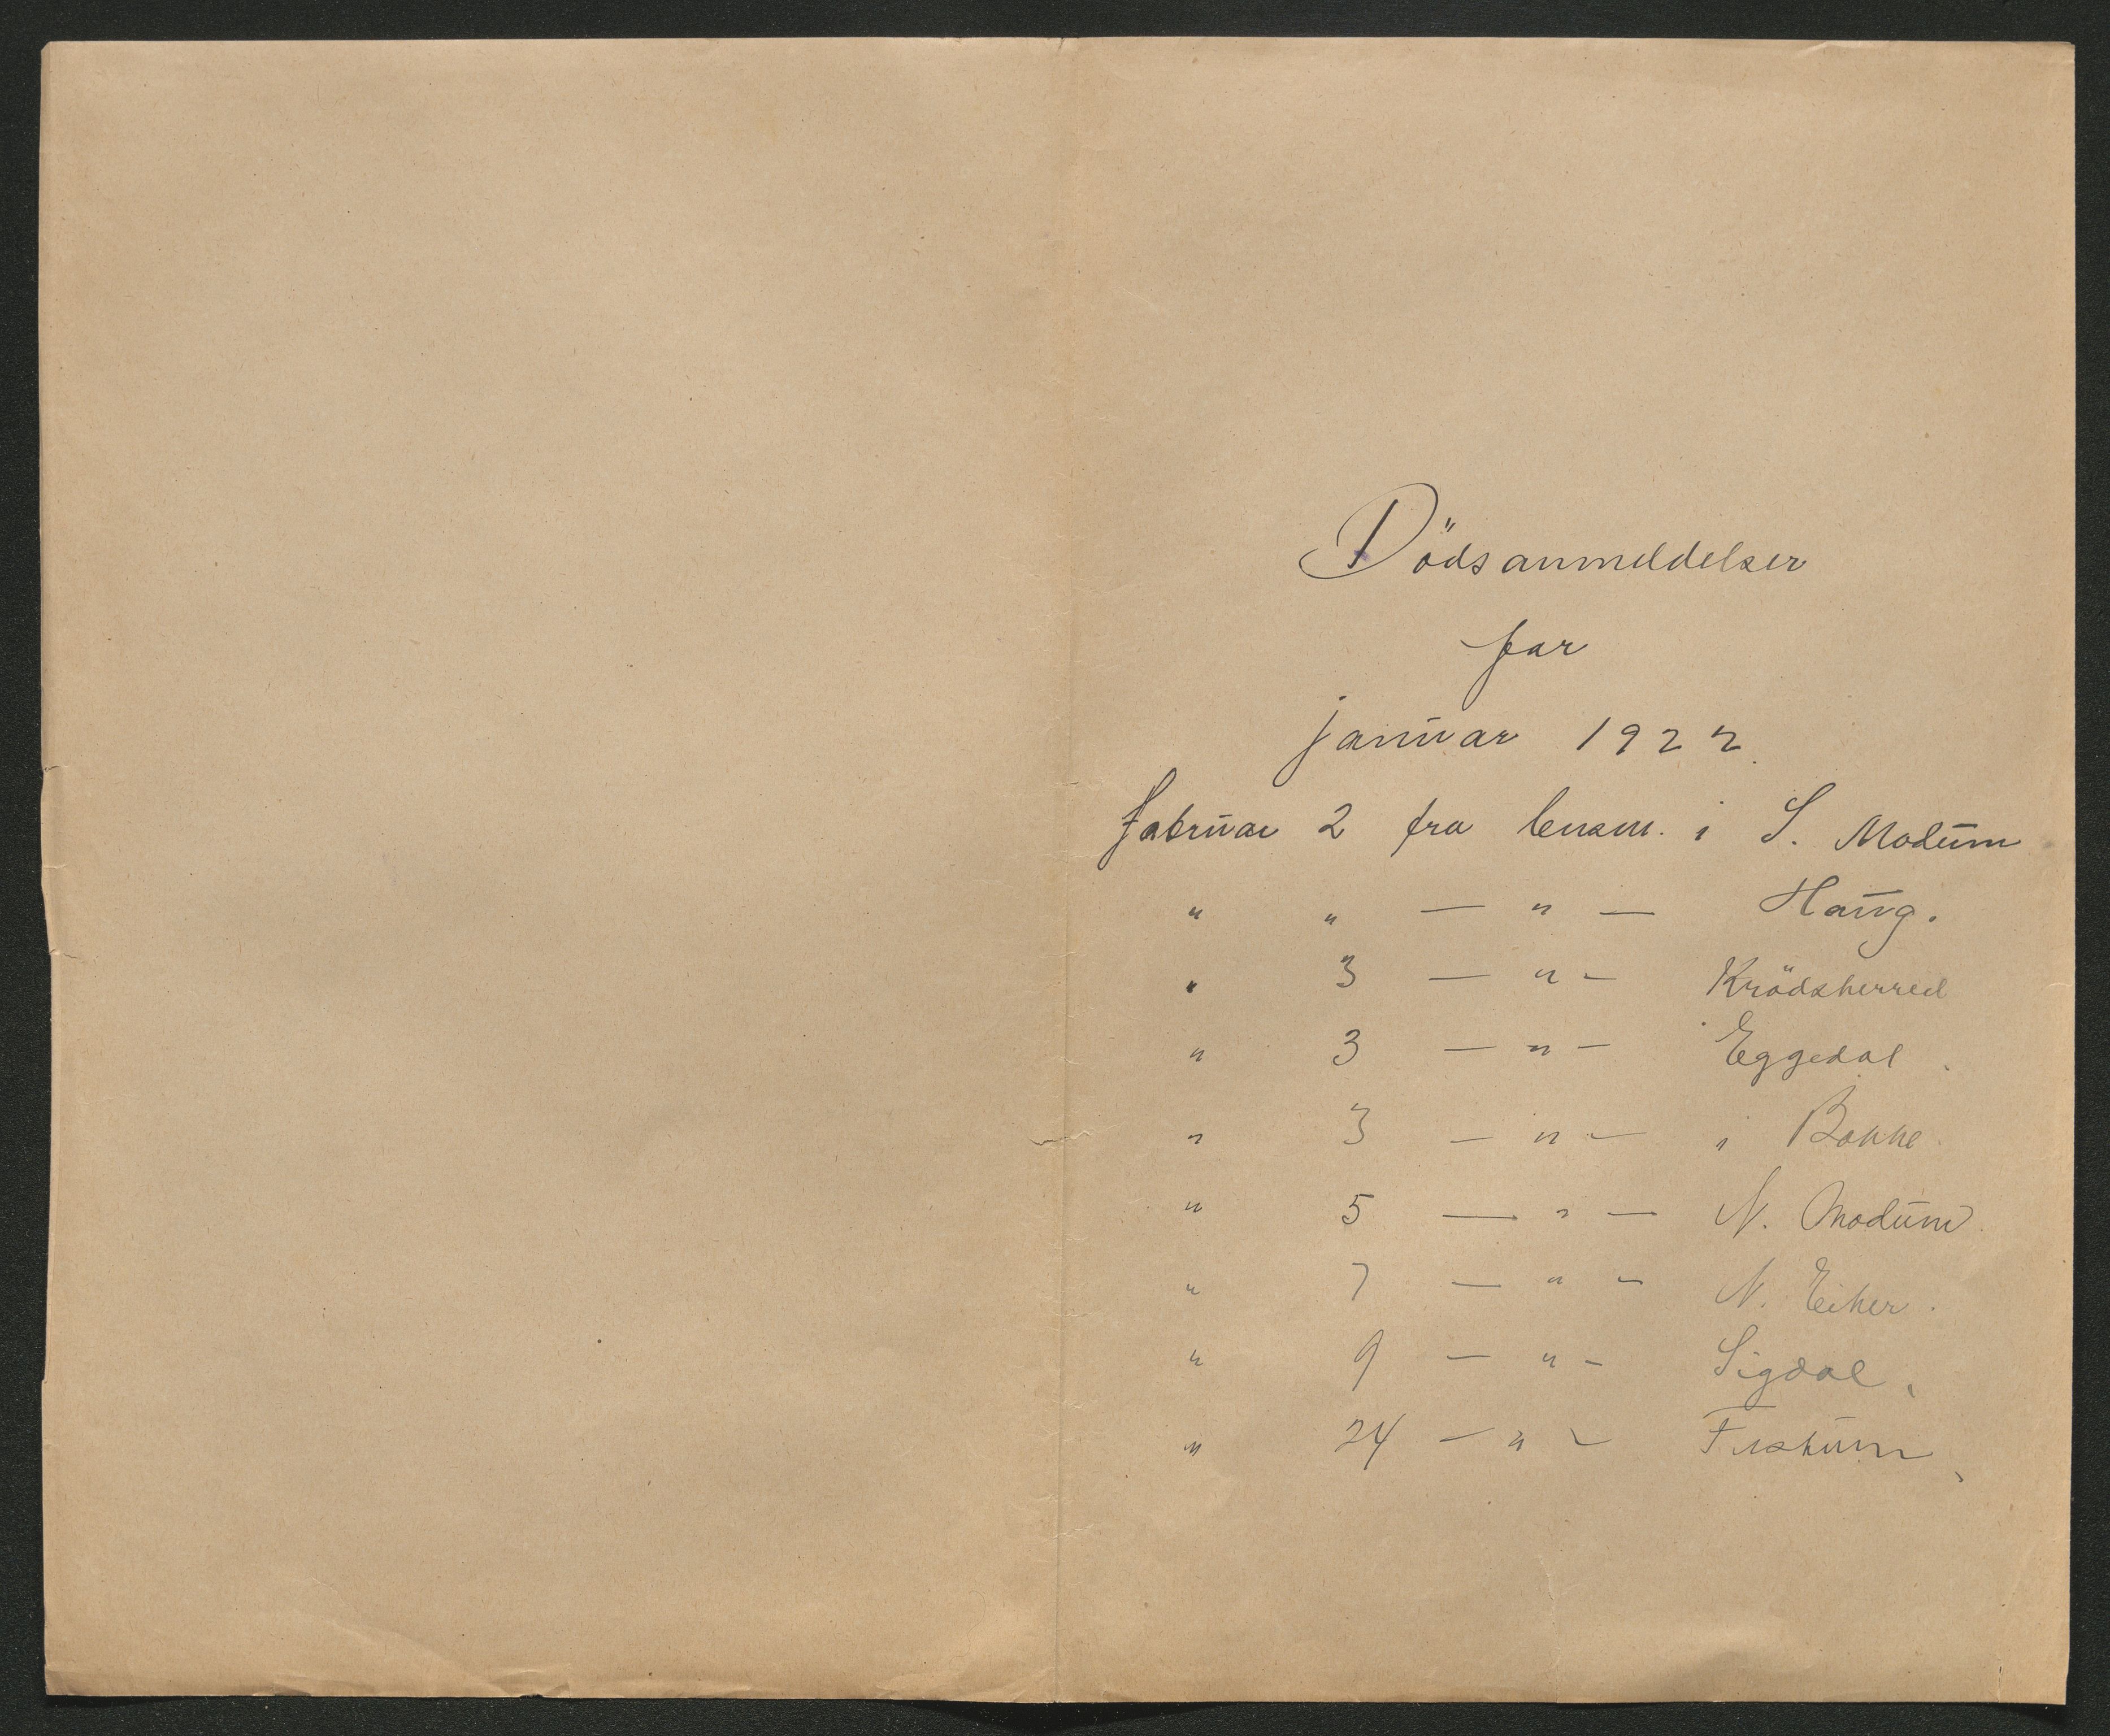 Dödsanmeldelser
for
januar 1922.
februar 2 fra lensm. i S. Modum
" " — " — Haug.
" 3 — " — Krödsherred
" 3 — " — Eggedal.
" 3 — " — i Bakke.
" 5 — " — N. Modum.
" 7 — " — N. Eiker.
" 9 — " — Sigdal.
" 24 — " — Fiskum.